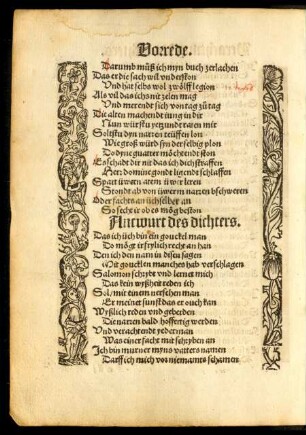 Vorrede.
Darumb můß ich myn buch zerlachen
Das er die sach wil vnderston
Vnd hat selbs wol zwölff legion
Als vil das ichs nit zelen mag
Vnd merendt sich von tag zů tag
Die alten machendt iung in dit
Nun würstu yetzundt raten mit
Soltstu dyn narren trüffen lon
Wie groß würd syn der selbig plon
Do dyne quatter möchtendt ston
Es schadt dir nit das ich dich straffen
Her domine gondt ligendt schlaffen
Spart üwern atem üwer leren
Stondt ab von üwerm narren bschweren
Oder fachts an üch selber an
So secht ir ob es mög beston
Antwurt des dichters.
Das ich üch bin ein gouckel man
Do mögt ir frylich recht an han
Den ich den nam in disen sagen
Mit goucklen manches hab verschlagen
Salomon schrybt vnd lernet mich
Das kein wyßheit reden ich
Sol/mit einem nerschen man
Er meinet sunst das er ouch kan
Wyßlich reden vnd geberden
Die narren bald hoffertig werden
Vnd verachtendt yederman
Was einer facht mit schryben an
Ich bin murner myns vatters namen
Darff ich mich vor niemants schamen